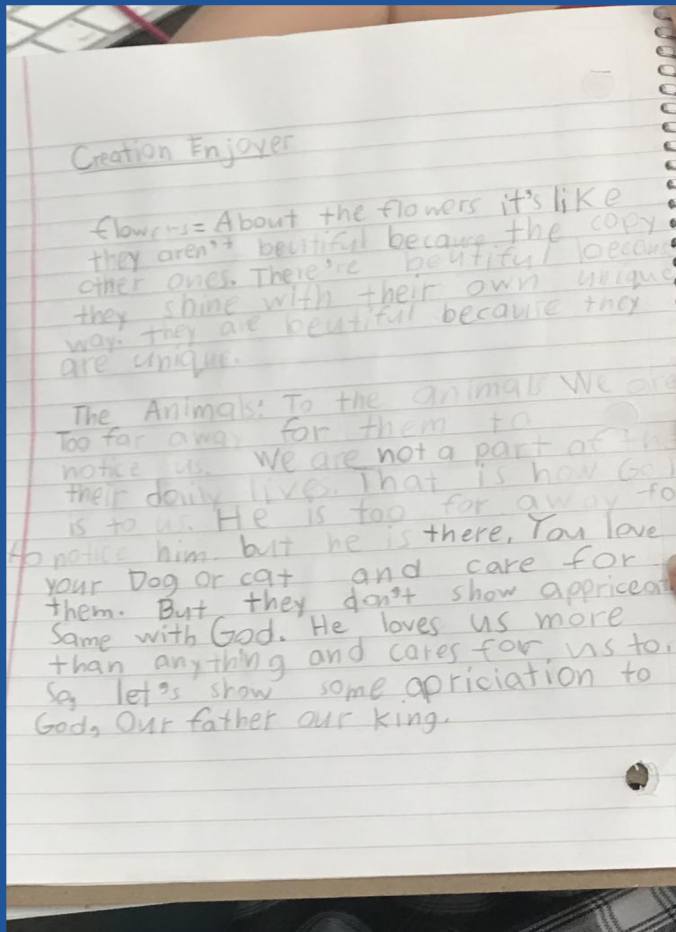 Creation Enjoyer
flowers= About the flowers it's like
they aren't beutiful because the copy
other ones. There're beutiful becaus
they shine with their own unique
way. they are beutiful because they
are unique.
The Animals: To the animals We are
Too far away for them to
notice us. We are not a part of
their daily lives. That is how God
is to us. He is too far away for
to notice him. but he is there. You love
your Dog or cat and care for
them. But they don't show appriceat
Same with God. He loves us more
than anything and cares for us to.
So, let's show some apriciation to
God, Our father our king.